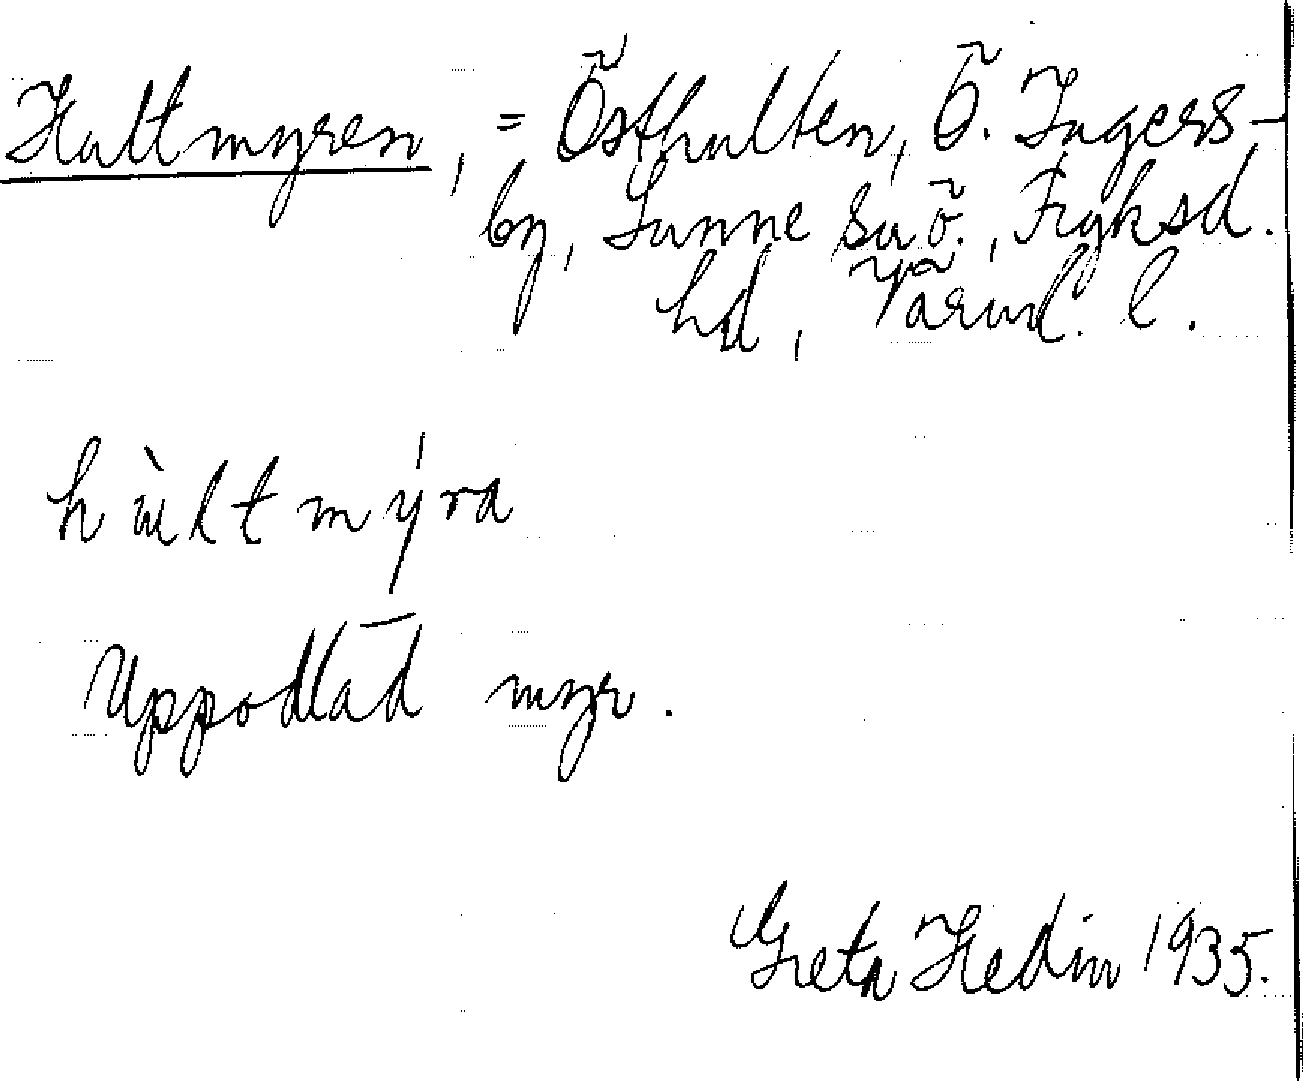 Hultmyren, = Östhulten, Ö. Ingers-
by, Sunne sn ö., Fryksd.
hd, Värml. l.
hùltmýra
Uppodlad myr.
Greta Hedin 1935.